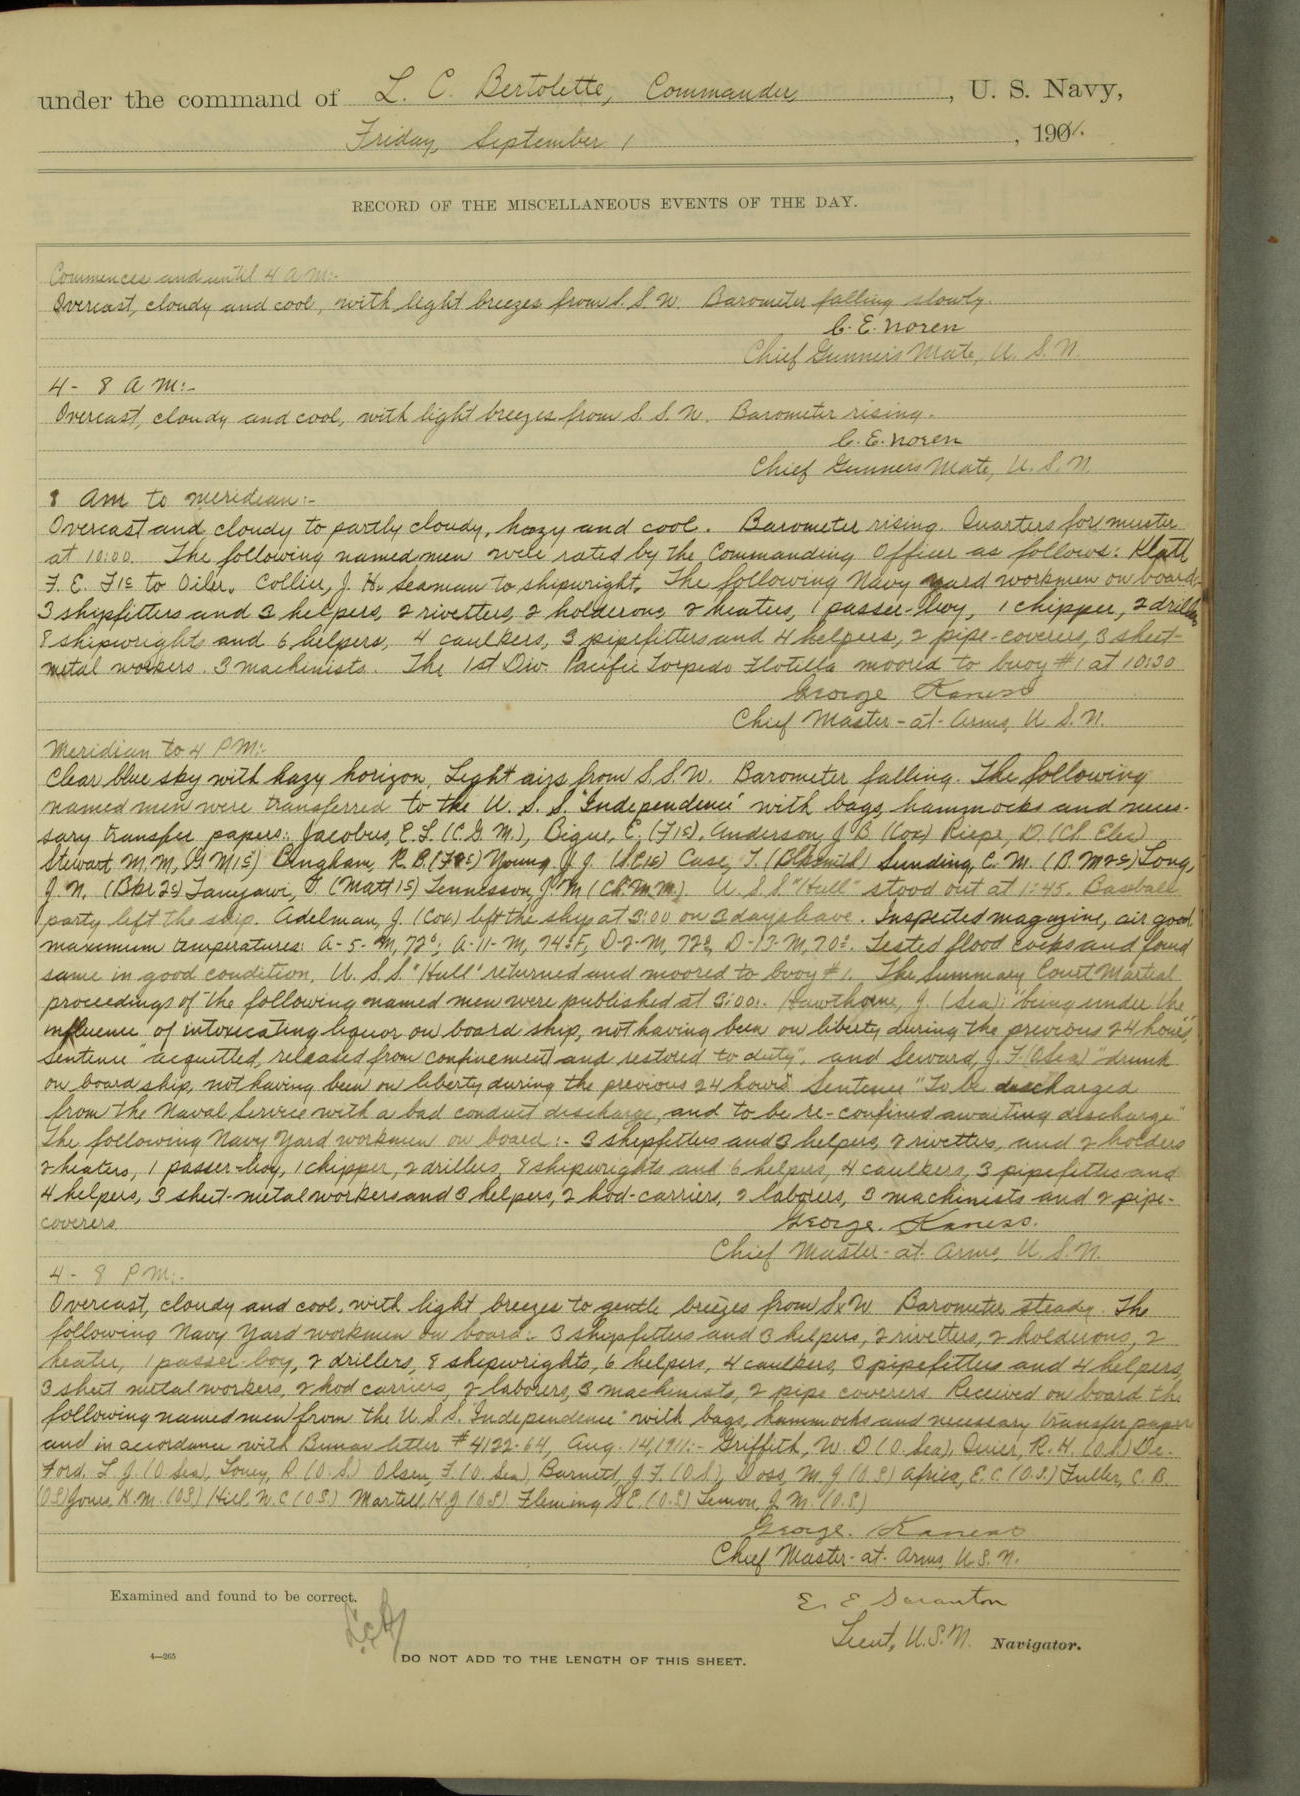 under the command of L. C. Bertolette, Commander, U. S. Navy,
Friday, September 1, 1901.
RECORD OF THE MISCELLANEOUS EVENTS OF THE DAY.
Commences and until 4 A M:-
Overcast, cloudy and cool, with light breezes from S.S.W. Barometer falling slowly.
C. E. Noren
Chief Gunner's Mate, U. S. N.
4 - 8 A M:-
Overcast, cloudy and cool, with light breezes from S. S. W. Barometer rising.
C. E. Noren
Chief Gunners Mate, U. S. N.
8 AM to meridian:-
Overcast and cloudy to partly cloudy, hazy and cool. Barometer rising. Quarters for muster
at 10:00. The following named men were rated by the Commanding Officer as follows: Klatt
F. E. F1c to Oiler. Collier, J. H. Seaman to shipwright. The following Navy yard workmen on board-
3 shipfitters and 3 helpers, 2 rivetters, 2 holderons, 2 heaters, 1 passer-boy, 1 chipper, 2 drillers
8 shipwrights and 6 helpers, 4 caulkers, 3 pipefitters and 4 helpers, 2 pipe-coverers, 3 sheet-
metal workers. 3 machinists. The 1st Div. Pacific Torpedo Flotilla moored to buoy #1 at 10:30
George Kaness
Chief Master-at-Arms, U S. N.
Meridian to 4 P M:-
Clear blue sky with hazy horizon. Light airs from S.S.W. Barometer falling. The following
named men were transferred to the U. S. S. "Independence" with bags, hammocks and neces-
sary transfer papers: Jacobus, E. L. (C. G. M.), Bigue, E. (F1c), Anderson, J B (Cox) Riepe, D. (Ch. Elec)
Stewart M. M, (G M 1c) Bingham, R. B. (F2c) Young, J. J. Case, T. (Blksmith) Sunding, C. M. (B M 2c) Long,
J. N. (Bkr 2c) (Matt 1c) Tennesson, J. M (Ch M M). U. S. S "Hull" stood out at 1:45. Baseball
party left the ship. Adelman, J. (Cox) left the ship at 3:00 on 3 days leave. Inspected magazine, air good.
maximum temperatures: A-5-M, 72°; A-11-M, 74°F, D-2-M, 72°, D-17-M, 70°. Tested flood cocks and found
same in good condition. U. S. S. "Hull" returned and moored to buoy #1. The Summary Court Martial
proceedings of the following named men were published at 3:00:. Hawthorne, J. (Sea): "being under the
influence" of intoxicating liquor on board ship, not having been on liberty during the previous 24 hours,
Sentence "acquitted, released from confinement and restored to duty". and Seward, J. F (O Sea) "drunk
on board ship, not having been on liberty during the previous 24 hours" Sentence "To be discharged
from the Naval Service with a bad conduct discharge, and to be re-confined awaiting discharge"
The following Navy Yard workmen on board:- 3 shipfitters and 3 helpers, 2 rivetters, and 2 holders
2 heaters, 1 passer-boy, 1 chipper, 2 drillers, 8 shipwrights and 6 helpers, 4 caulkers, 3 pipefitters and
4 helpers, 3 sheet-metal workers and 3 helpers, 2 hod-carriers, 2 laborers, 3 machinists and 2 pipe-
coverers.
George. Kaness.
Chief Master-at-Arms, U. S. N.
4 - 8 P M:-
Overcast, cloudy and cool, with light breezes to gentle breezes from SxW Barometer steady. The
following Navy Yard workmen on board:- 3 shipfitters and 3 helpers, 2 rivetters, 2 holderons, 2
heater, 1 passer-boy, 2 drillers, 8 shipwrights, 6 helpers, 4 caulkers, 3 pipefitters and 4 helpers,
3 sheet metal workers, 2 hod carriers, 2 laborers, 3 machinists, 2 pipe coverers. Received on board the
following named men from the U. S. S. Independence" with bags, hammocks and necessary transfer papers
and in accordance with Bunav letter #4122-64, Aug. 14, 1911:- Griffith, W. D (O Sea), R. H. (O.S.) De-
Ford, L. J. (O Sea), Toney, R (O. S.) Olsen, F. (O. Sea), Burnett, J. F. (O S), Doss, M. J (O. S) Africa, E. C. (O.S.) Fuller, C. B.
(O.S) Jones, H. M. (OS) Hill, W. C (O S.) Martell, H. J (O.S) Fleming D E. (O.S) Lemon, J. M. (O.S)
George. Kaness
Chief Master-at-Arms, U. S. N.
Examined and found to be correct.
L.C.B
E. E. Scranton
Lieut, U. S. N. Navigator.
4—265
DO NOT ADD TO THE LENGTH OF THIS SHEET.